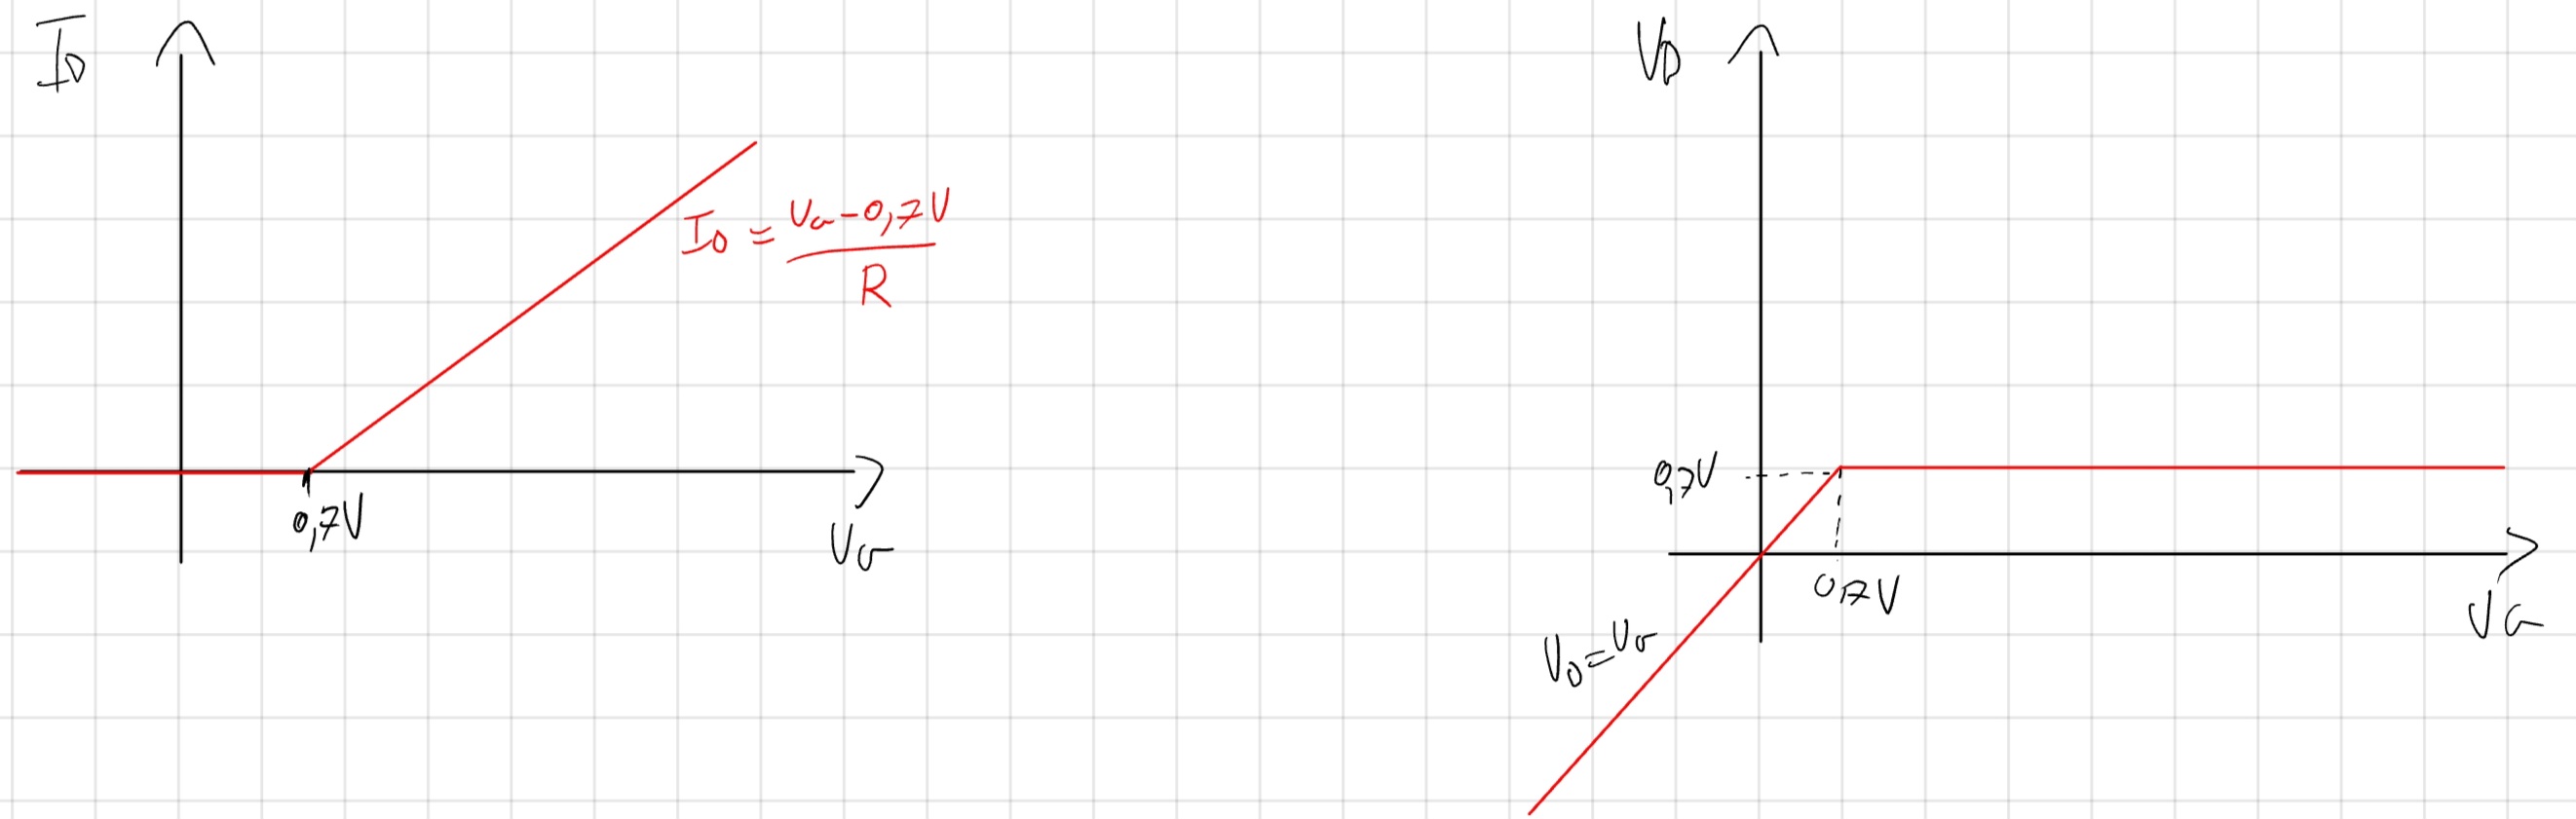 I_D
I_D = (V_G - 0,7V) / R
0,7V
V_G
V_D
0,7V
0,7V
V_G
V_D = V_G